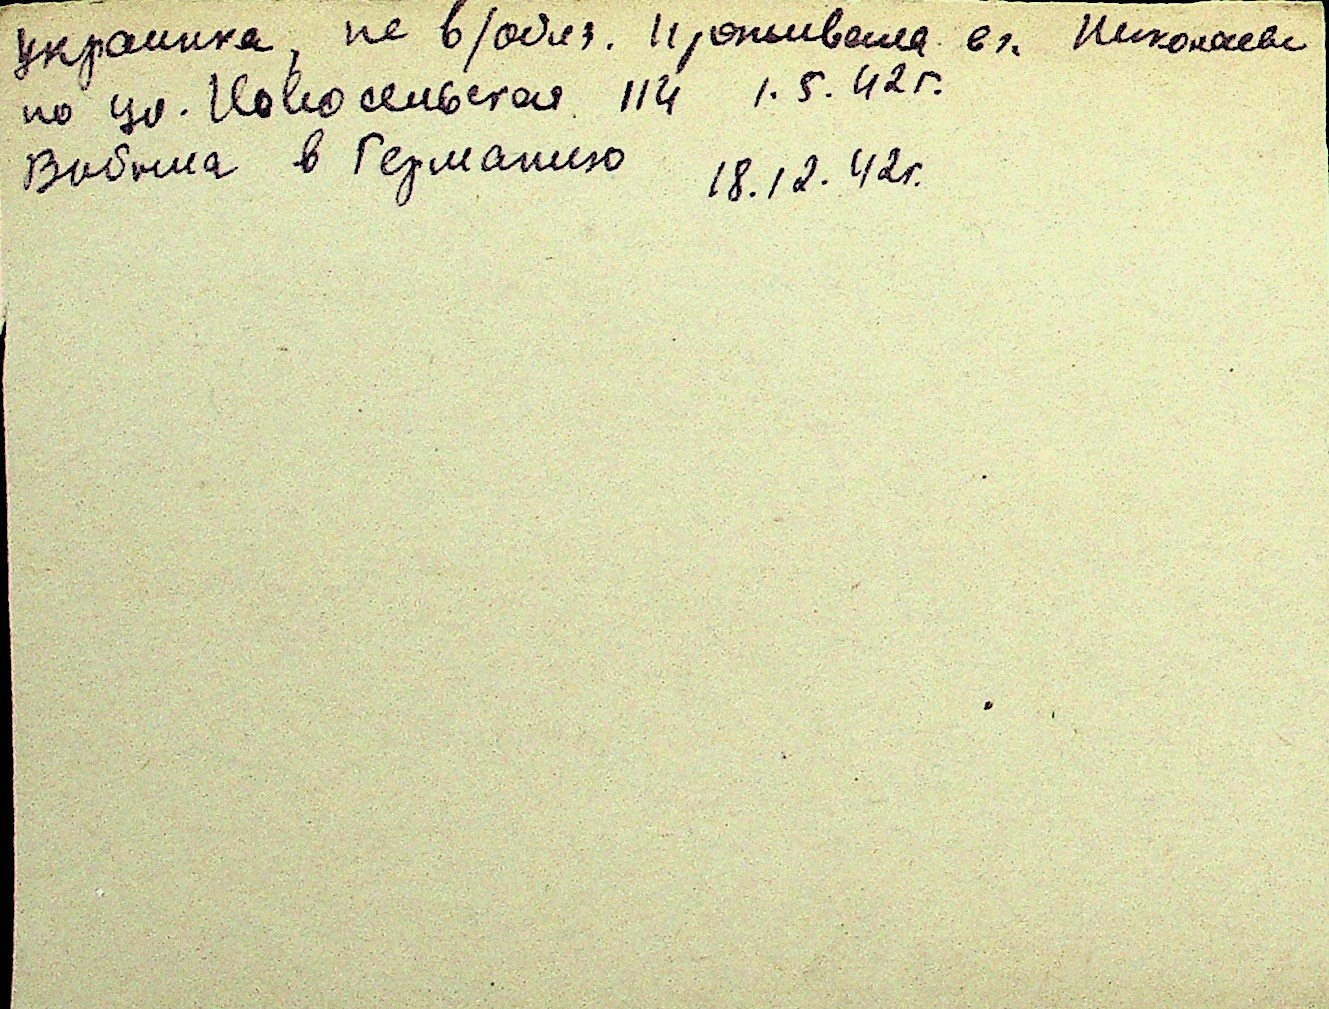 украинка, не в/обяз. Проживала в г. Николаеве
по ул. Новосельская 114 1.5.42г.
Выбыла в Германию 18.12.42г.